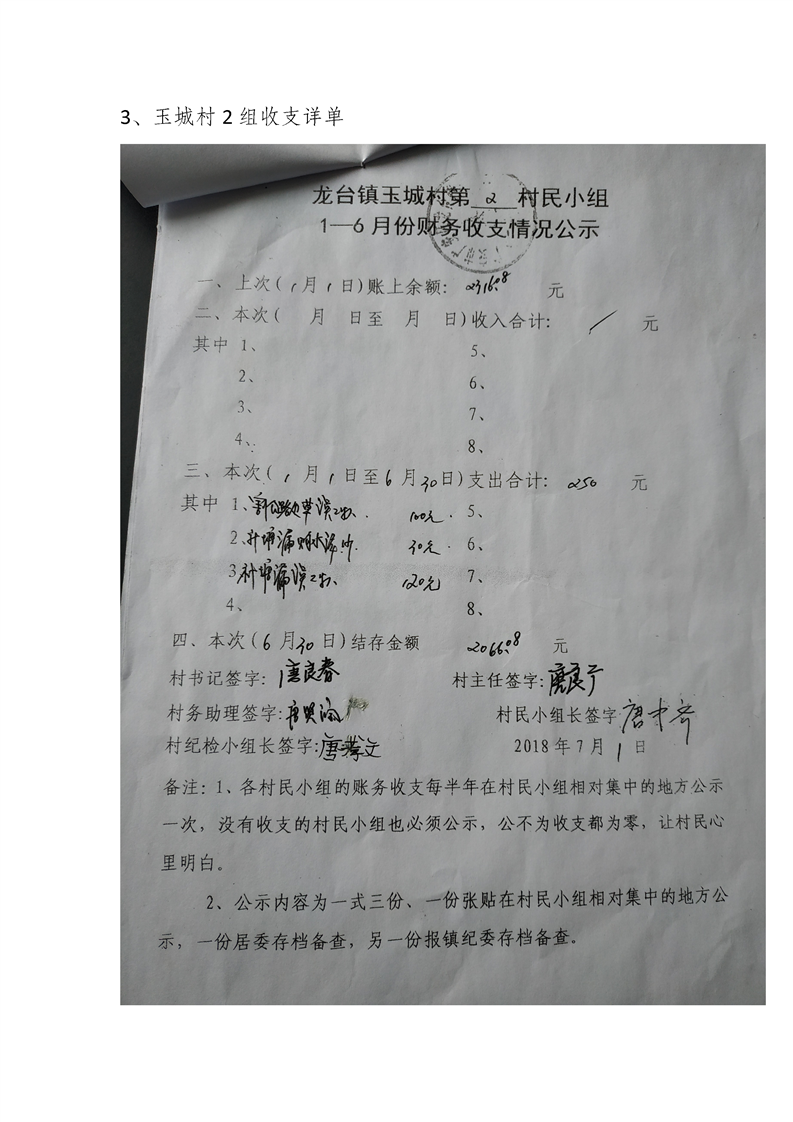 3、玉城村2组收支详单
龙台镇玉城村第 2 村民小组
1—6月份财务收支情况公示
一、上次(1月1日)账上余额: 2316.08 元
二、本次( 月 日至 月 日)收入合计: / 元
其中 1、 5、
2、 6、
3、 7、
4、 8、
三、本次(1月1日至6月30日)支出合计: 250 元
其中 1、割公路边草 100元. 5、
2、补塘漏 30元. 6、
3、补塘漏 120元 7、
4、 8、
四、本次(6月30日)结存金额 2066.08 元
村书记签字: 唐良春 村主任签字: 唐良
村务助理签字: 唐 村民小组长签字 唐中齐
村纪检小组长签字: 唐 文 2018年7月1日
备注: 1、各村民小组的账务收支每半年在村民小组相对集中的地方公示
一次, 没有收支的村民小组也必须公示, 公不为收支都为零, 让村民心
里明白。
2、公示内容为一式三份、一份张贴在村民小组相对集中的地方公
示, 一份居委存档备查, 另一份报镇纪委存档备查。